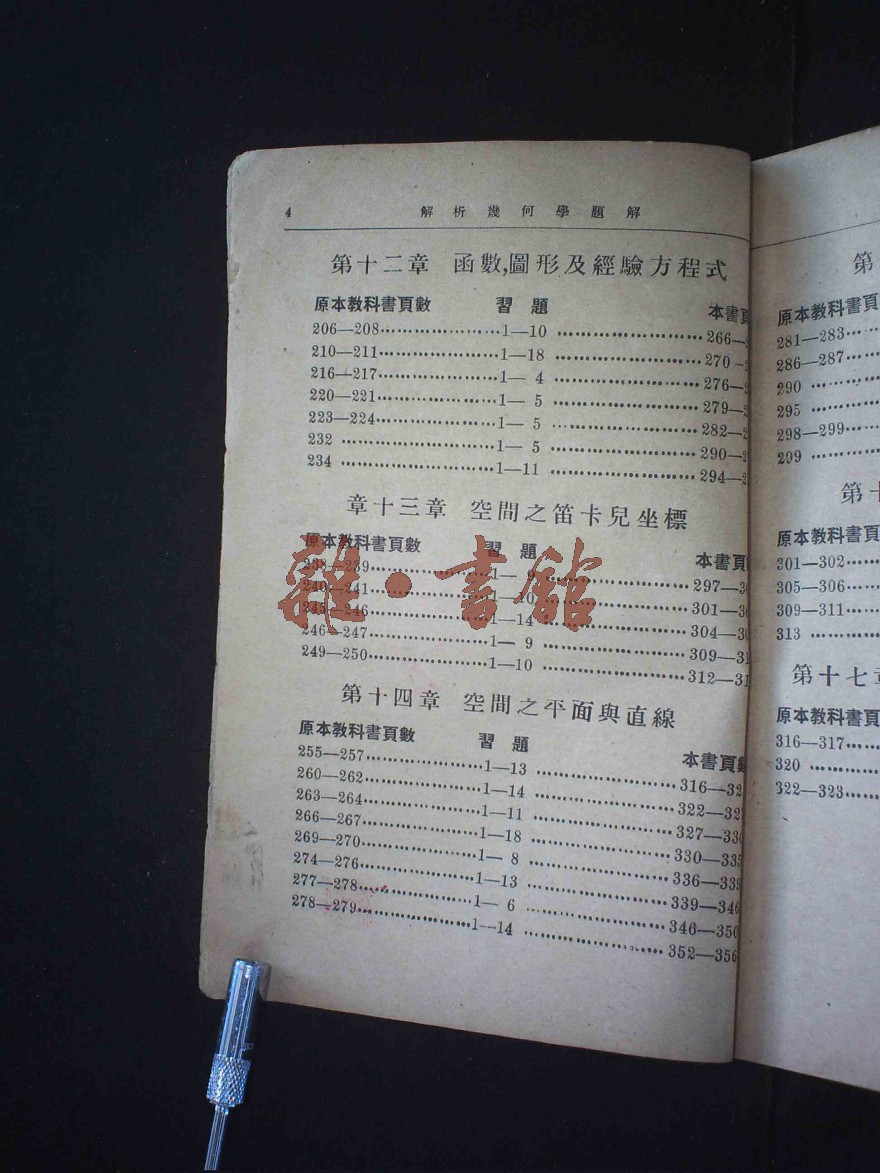 4 解析幾何學題解
第十二章 函數,圖形及經驗方程式
原本教科書頁數 習題 本書頁
206—208 1—10 266—
210—211 1—18 270—
216—217 1—4 276—
220—221 1—5 279—
223—224 1—5 282—
232 1—5 290—
234 1—11 294—
章十三章 空間之笛卡兒坐標
原本教科書頁數 習題 本書頁
238—239 1— 297—
240—241 1—10 301—
245—246 1—14 304—
246—247 1—9 309—31
249—250 1—10 312—31
第十四章 空間之平面與直線
原本教科書頁數 習題 本書頁
255—257 1—13 316—32
260—262 1—14 322—32
263—264 1—11 327—330
266—267 1—18 330—335
269—270 1—8 336—339
274—276 1—13 339—346
277—278 1—6 346—350
278—279 1—14 352—356
雜·書館
第
原本教科書頁
281—283
286—287
290
295
298—299
299
第十
原本教科書頁
301—302
305—306
309—311
313
第十七章
原本教科書頁
316—317
320
322—323